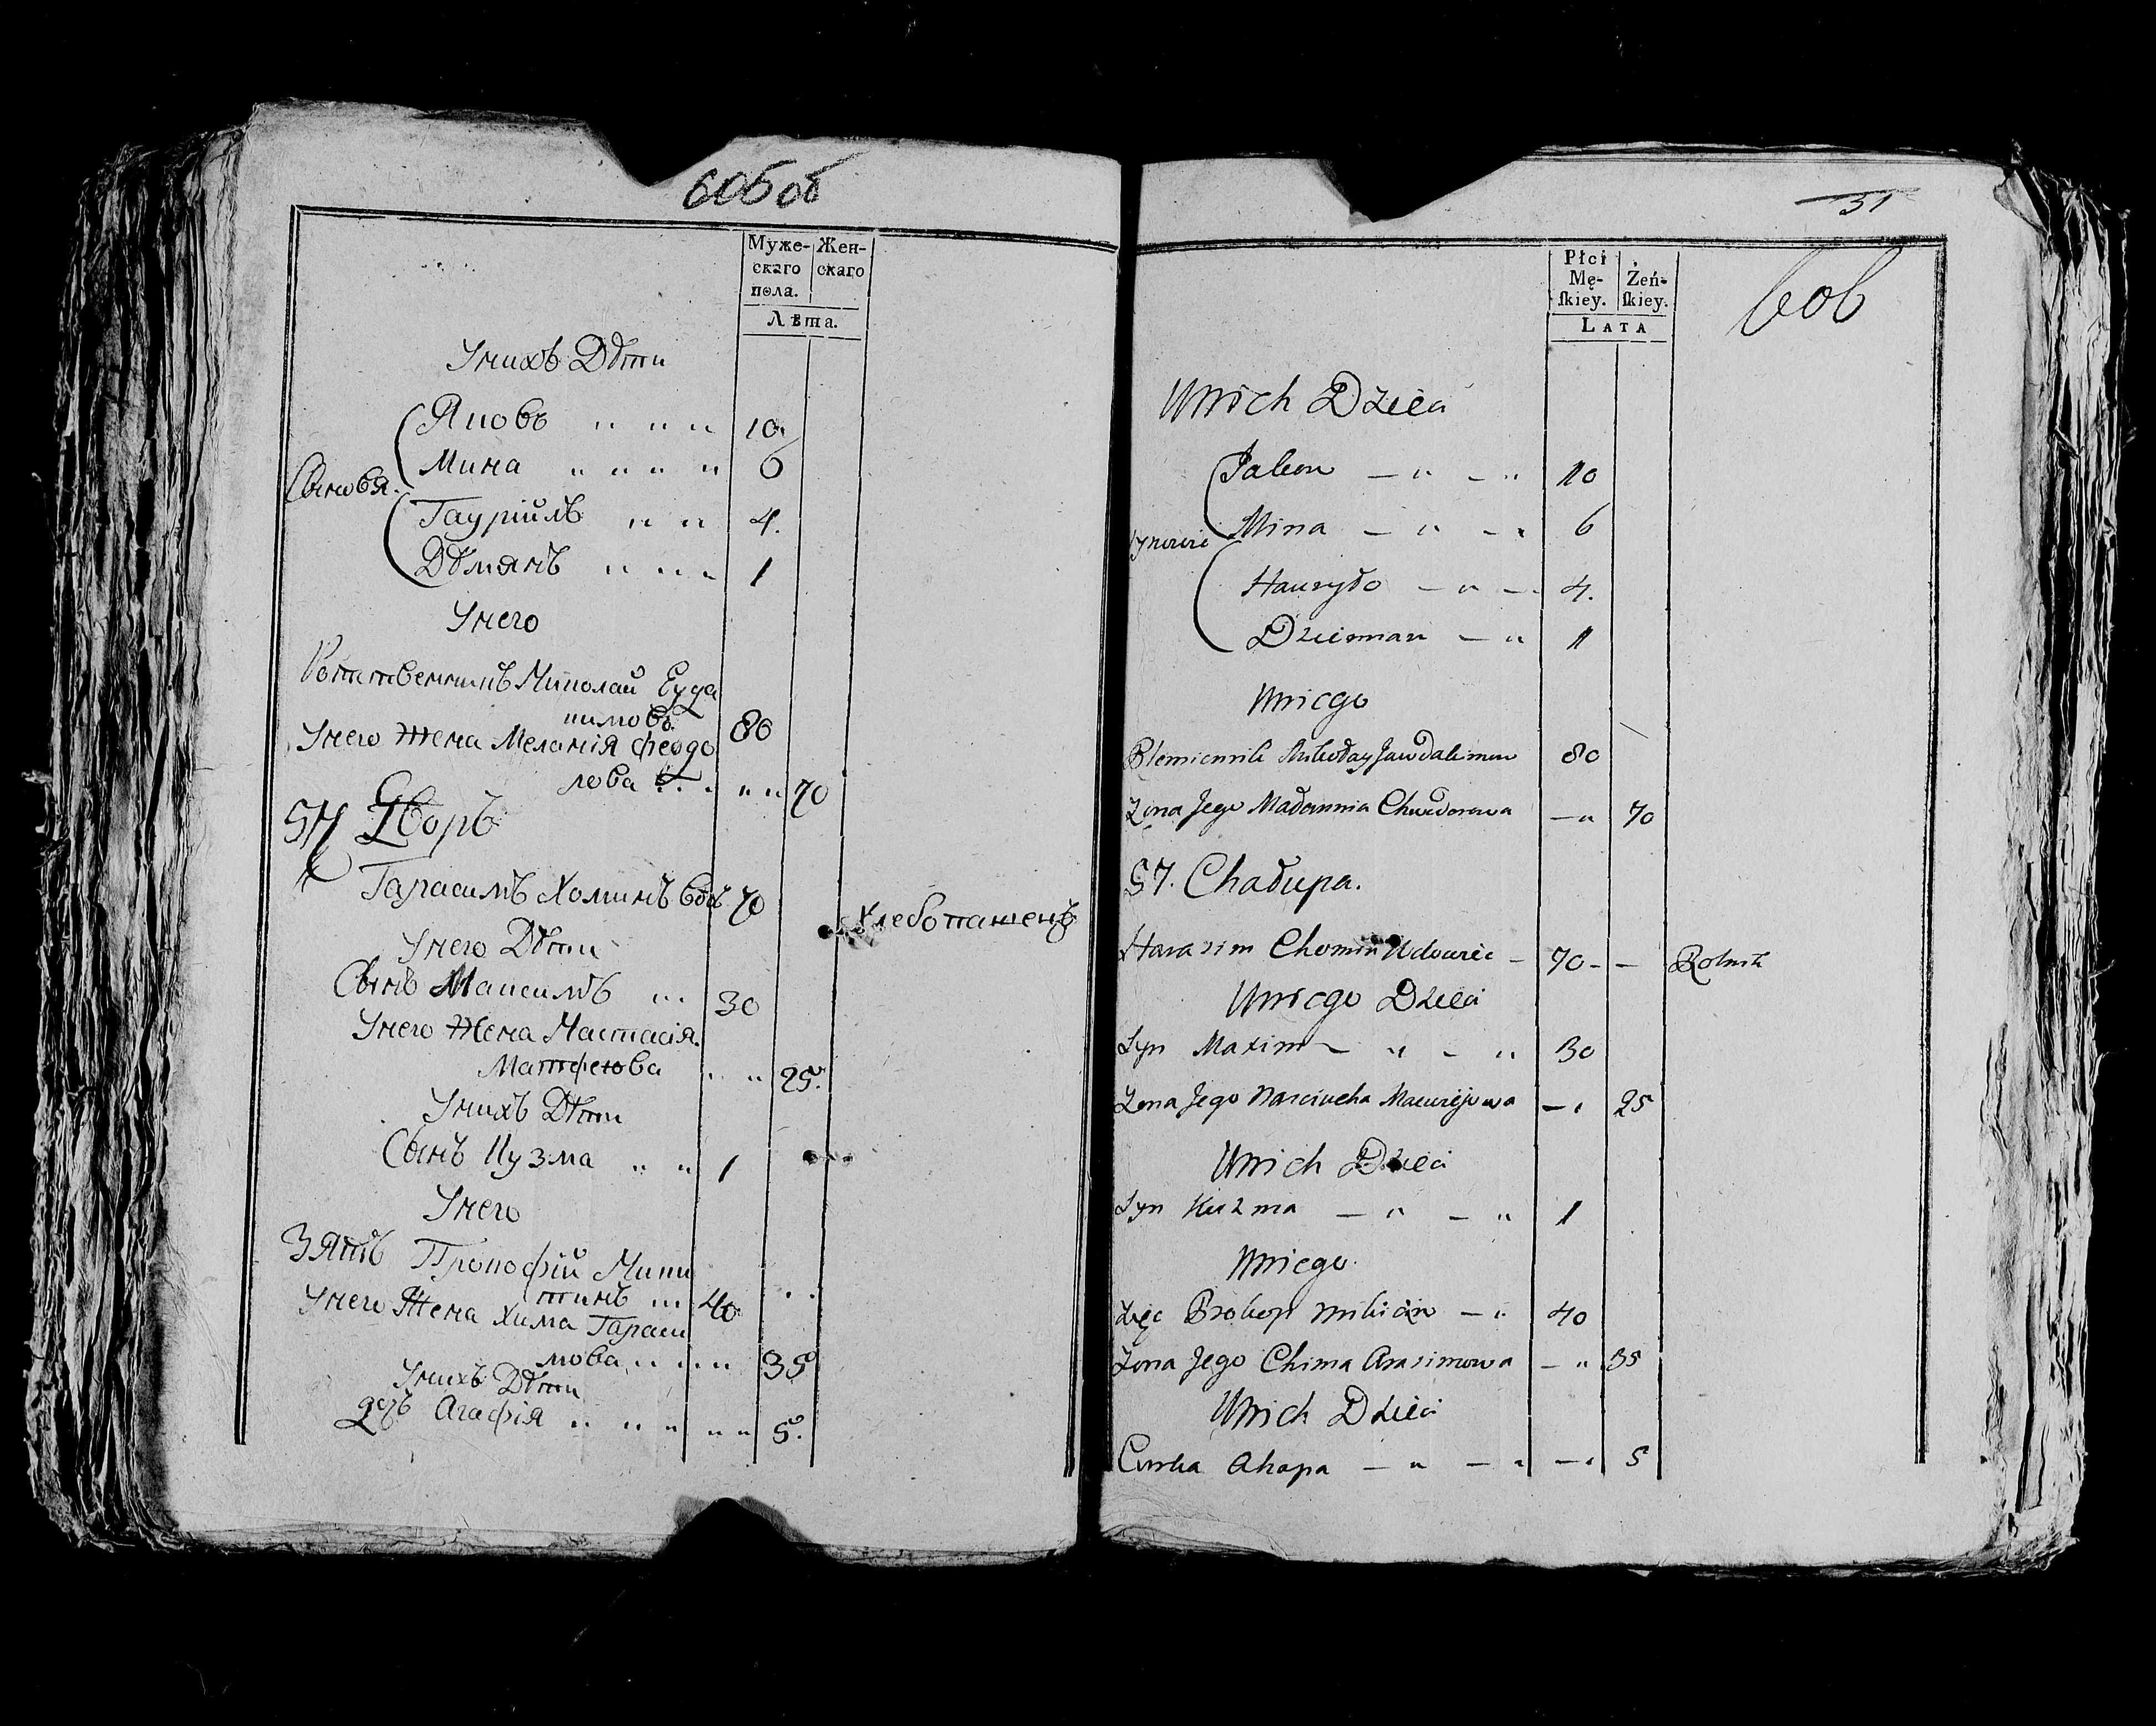 606 об
Муже- Жен-
скаго скаго
пола.
Лѣта.
Унихъ Дѣти
Яковъ " " " 10
Мина " " " " 6
Сыновья
Гаурійлъ " " 4.
Дѣмянъ " " " 1
Унего
Николай Еуда
кимовъ 80
Унего Жена Меланія Феодо
рова " " " " 70
57 Дворъ
Гарасимъ Хоминъ вдов 70 Хлебопашецъ
Унего Дѣти
Сынъ Максимъ " " 30
Унего Жена Настасія
Матфеюва " " 25.
Унихъ Дѣти
Сынъ Кузма " " 1
Унего
Зять Прокофій Мики
тинъ " 40
Унего Жена Хима Гараси
мова " " " 35
Унихъ Дѣти
дочь Агафія " " " " " 5.
31
606
Płci
Mę- Żeń-
skiey. skiey.
LATA
Unich Dzieci
Jakow — " — " 10
Mina — " — " 6
Synowie
Hauryło — " — 4.
Dziemian — " 1
Uniego
Plemiennik Mikołay Jawdakimow 80
Zona Jego Małannia Chwedorowa — " 70
57. Chałupa.
Harasim Chomin Udowiec — 70 - — Rolnik
Uniego Dzieci
Syn Maxim — " — " 30
Zona Jego Nasciucha Maciwiejowa — " 25
Unich Dzieci
Syn Kuzma — " — " 1
Uniego
Zięć Prokop Mikicin — " 40
Zona Jego Chima Arasimowa — " 35
Unich Dzieci
Curka Ahapa — " — " — " 5